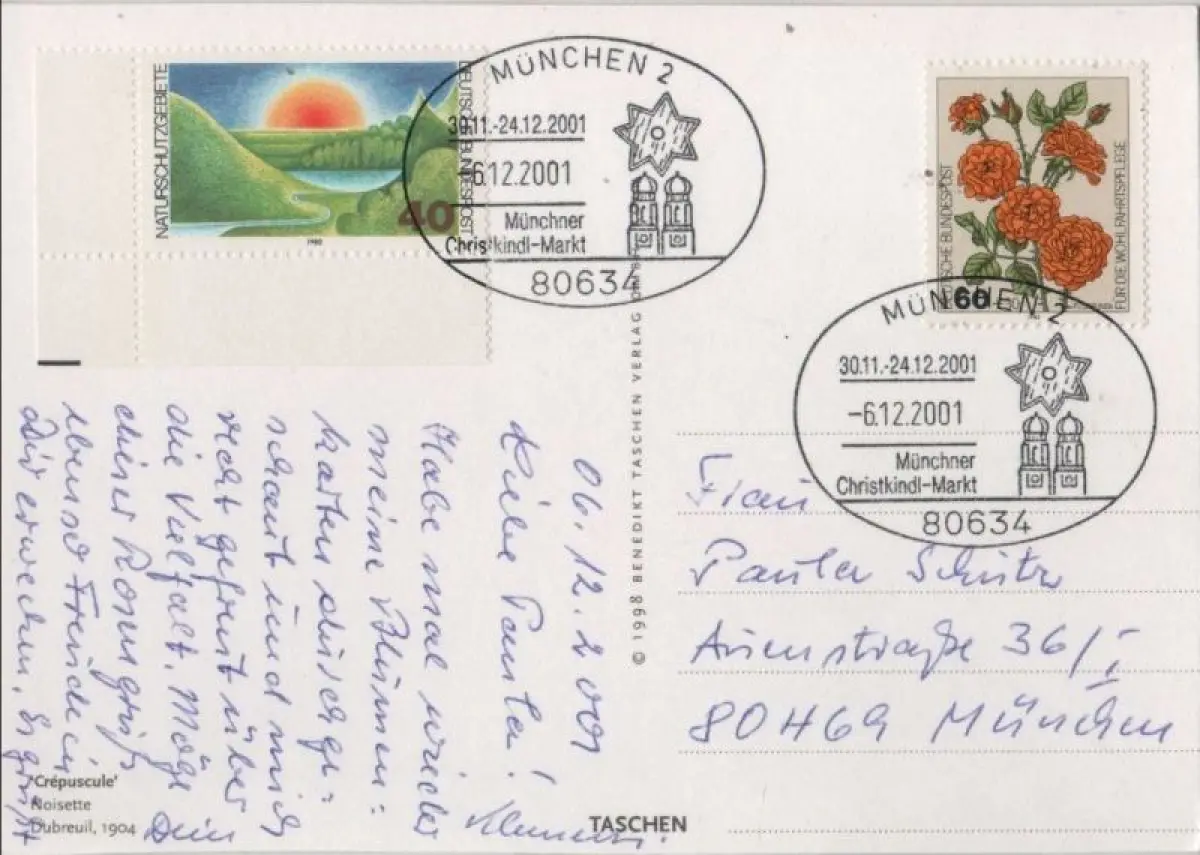 NATURSCHUTZGEBIETE
DEUTSCHE BUNDESPOST
40
1980
MÜNCHEN 2
30.11.-24.12.2001
-6.12.2001
Münchner
Christkindl-Markt
80634
DEUTSCHE BUNDESPOST
FÜR DIE WOHLFAHRTSPFLEGE
60
MÜNCHEN 2
30.11.-24.12.2001
-6.12.2001
Münchner
Christkindl-Markt
80634
06.12.2001
Liebe Paula!
Habe mal wieder
meine Blumen=
karten durchge=
schaut und mich
recht gefreut über
die Vielfalt. Möge
dieser Rosengruß
ebenso Freude in
Dir erwecken. Es grüßt
Dein
© 1998 BENEDIKT TASCHEN VERLAG
Frau
Paula Schütz
Auenstraße 36/I
80469 München
'Crépuscule'
Noisette
Dubreuil, 1904
TASCHEN